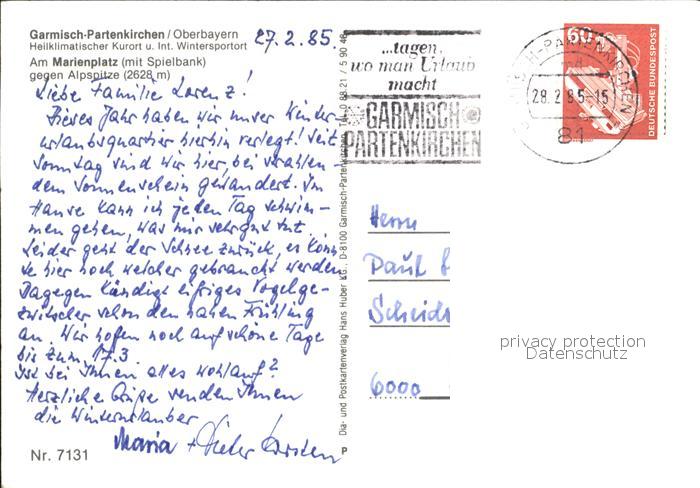 Garmisch-Partenkirchen / Oberbayern
Heilklimatischer Kurort u. Int. Wintersportort
Am Marienplatz (mit Spielbank)
gegen Alpspitze (2628 m)
27.2.85.
Liebe Familie Lorenz!
Dieses Jahr haben wir unser Winter-
urlaubsquartier hierhin verlegt! Seit
Sonntag sind wir hier, bei strahlen-
dem Sonnenschein gewandert. Im
Hause kann ich jeden Tag schwim-
men gehen, was mir sehr gut tut.
Leider geht der Schnee zurück, es könn
te hier noch welcher gebraucht werden
Dagegen kündigt eifriges Vogelge-
zwitscher schon den nahen Frühling
an. Wir hoffen noch auf schöne Tage
bis zum 17.3.
Ist bei Ihnen alles wohlauf?
Herzliche Grüße senden Ihnen
die Winterurlauber
Maria + Dieter Karsten
Nr. 7131
Dia- und Postkartenverlag Hans Huber KG., D-8100 Garmisch-Partenkirchen
P
...tagen,
wo man Urlaub
macht
GARMISCH
PARTENKIRCHEN
H-PARTENKIRCHEN
28.2.85-15
81
60
DEUTSCHE BUNDESPOST
Herrn
Paul
Scheids
6000
privacy protection
Datenschutz